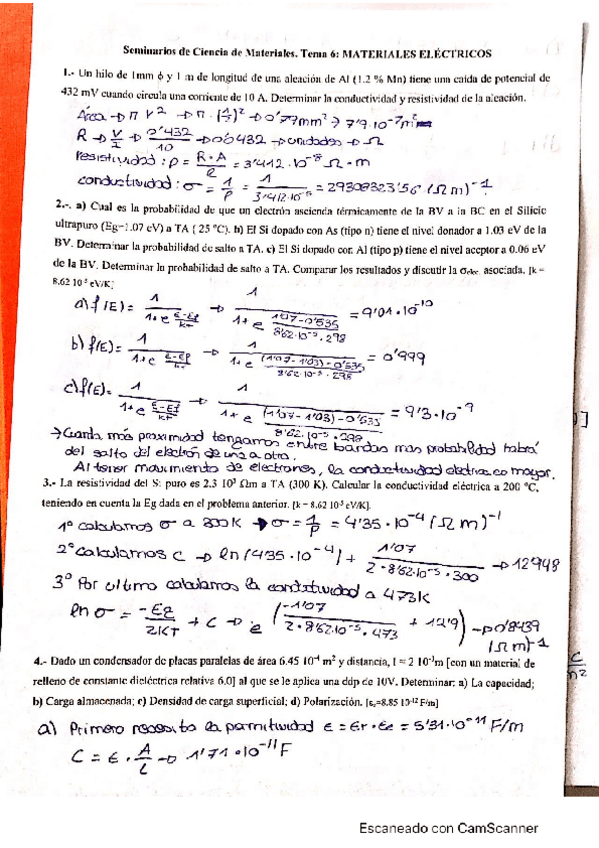 Seminarios de Ciencia de Materiales. Tema 6: MATERIALES ELÉCTRICOS
1.- Un hilo de 1mm ϕ y 1 m de longitud de una aleación de Al (1.2 % Mn) tiene una caída de potencial de
432 mV cuando circula una corriente de 10 A. Determinar la conductividad y resistividad de la aleación.
Área → π r² → π · (1/2)² → 0'79mm² → 7'9·10⁻⁷m²
R → V/I → 0'432/10 → 0'0432 → unidades → Ω
resistividad: ρ = R·A/l = 3'412·10⁻⁸ Ω·m
conductividad: σ = 1/ρ = 1/3'412·10⁻⁸ = 29308323'56 (Ωm)⁻¹
2.-. a) Cual es la probabilidad de que un electrón ascienda térmicamente de la BV a la BC en el Silicio
ultrapuro (Eg=1.07 eV) a TA ( 25 ºC). b) El Si dopado con As (tipo n) tiene el nivel donador a 1.03 eV de la
BV. Determinar la probabilidad de salto a TA. c) El Si dopado con Al (tipo p) tiene el nivel aceptor a 0.06 eV
de la BV. Determinar la probabilidad de salto a TA. Comparar los resultados y discutir la σelec. asociada. [k =
8.62 10⁻⁵ eV/K]
a) f(E) = 1/(1+e^((E-Ef)/kT)) → 1/(1+e^((1'07-0'535)/(8'62·10⁻⁵·298))) = 9'01·10⁻¹⁰
b) f(E) = 1/(1+e^((E-Ef)/kT)) → 1/(1+e^(((1'07-1'03)-0'535)/(8'62·10⁻⁵·298))) = 0'999
c) f(E) = 1/(1+e^((E-Ef)/kT)) → 1/(1+e^(((1'07-1'03)-0'535)/(8'62·10⁻⁵·298))) = 9'3·10⁻⁹
→ Cuanta más proximidad tengamos entre bandas mas probabilidad habrá
del salto del electrón de una a otra.
Al tener movimiento de electrones, la conductividad electrica es mayor.
3.- La resistividad del Si puro es 2.3 10³ Ωm a TA (300 K). Calcular la conductividad eléctrica a 200 ºC,
teniendo en cuenta la Eg dada en el problema anterior. [k = 8.62 10⁻⁵ eV/K].
1º calculamos σ a 300K → σ = 1/ρ = 4'35·10⁻⁴ (Ωm)⁻¹
2º calculamos C → ln(4'35·10⁻⁴) + 1'07/(2·8'62·10⁻⁵·300) → 12'948
3º Por ultimo calculamos la conductividad a 473K
ln σ = -Eg/2KT + C → e^(-1'07/(2·8'62·10⁻⁵·473) + 12'9) → 0'8439
(Ωm)⁻¹
4.- Dado un condensador de placas paralelas de área 6.45 10⁻⁴ m² y distancia, l = 2 10⁻³m [con un material de
relleno de constante dieléctrica relativa 6.0] al que se le aplica una ddp de 10V. Determinar: a) La capacidad;
b) Carga almacenada; c) Densidad de carga superficial; d) Polarización. [ε₀=8.85 10⁻¹² F/m]
a) Primero necesito la permitividad ε = εr·ε₀ = 5'31·10⁻¹¹ F/m
C = ε·A/L → 1'71·10⁻¹¹ F
Escaneado con CamScanner